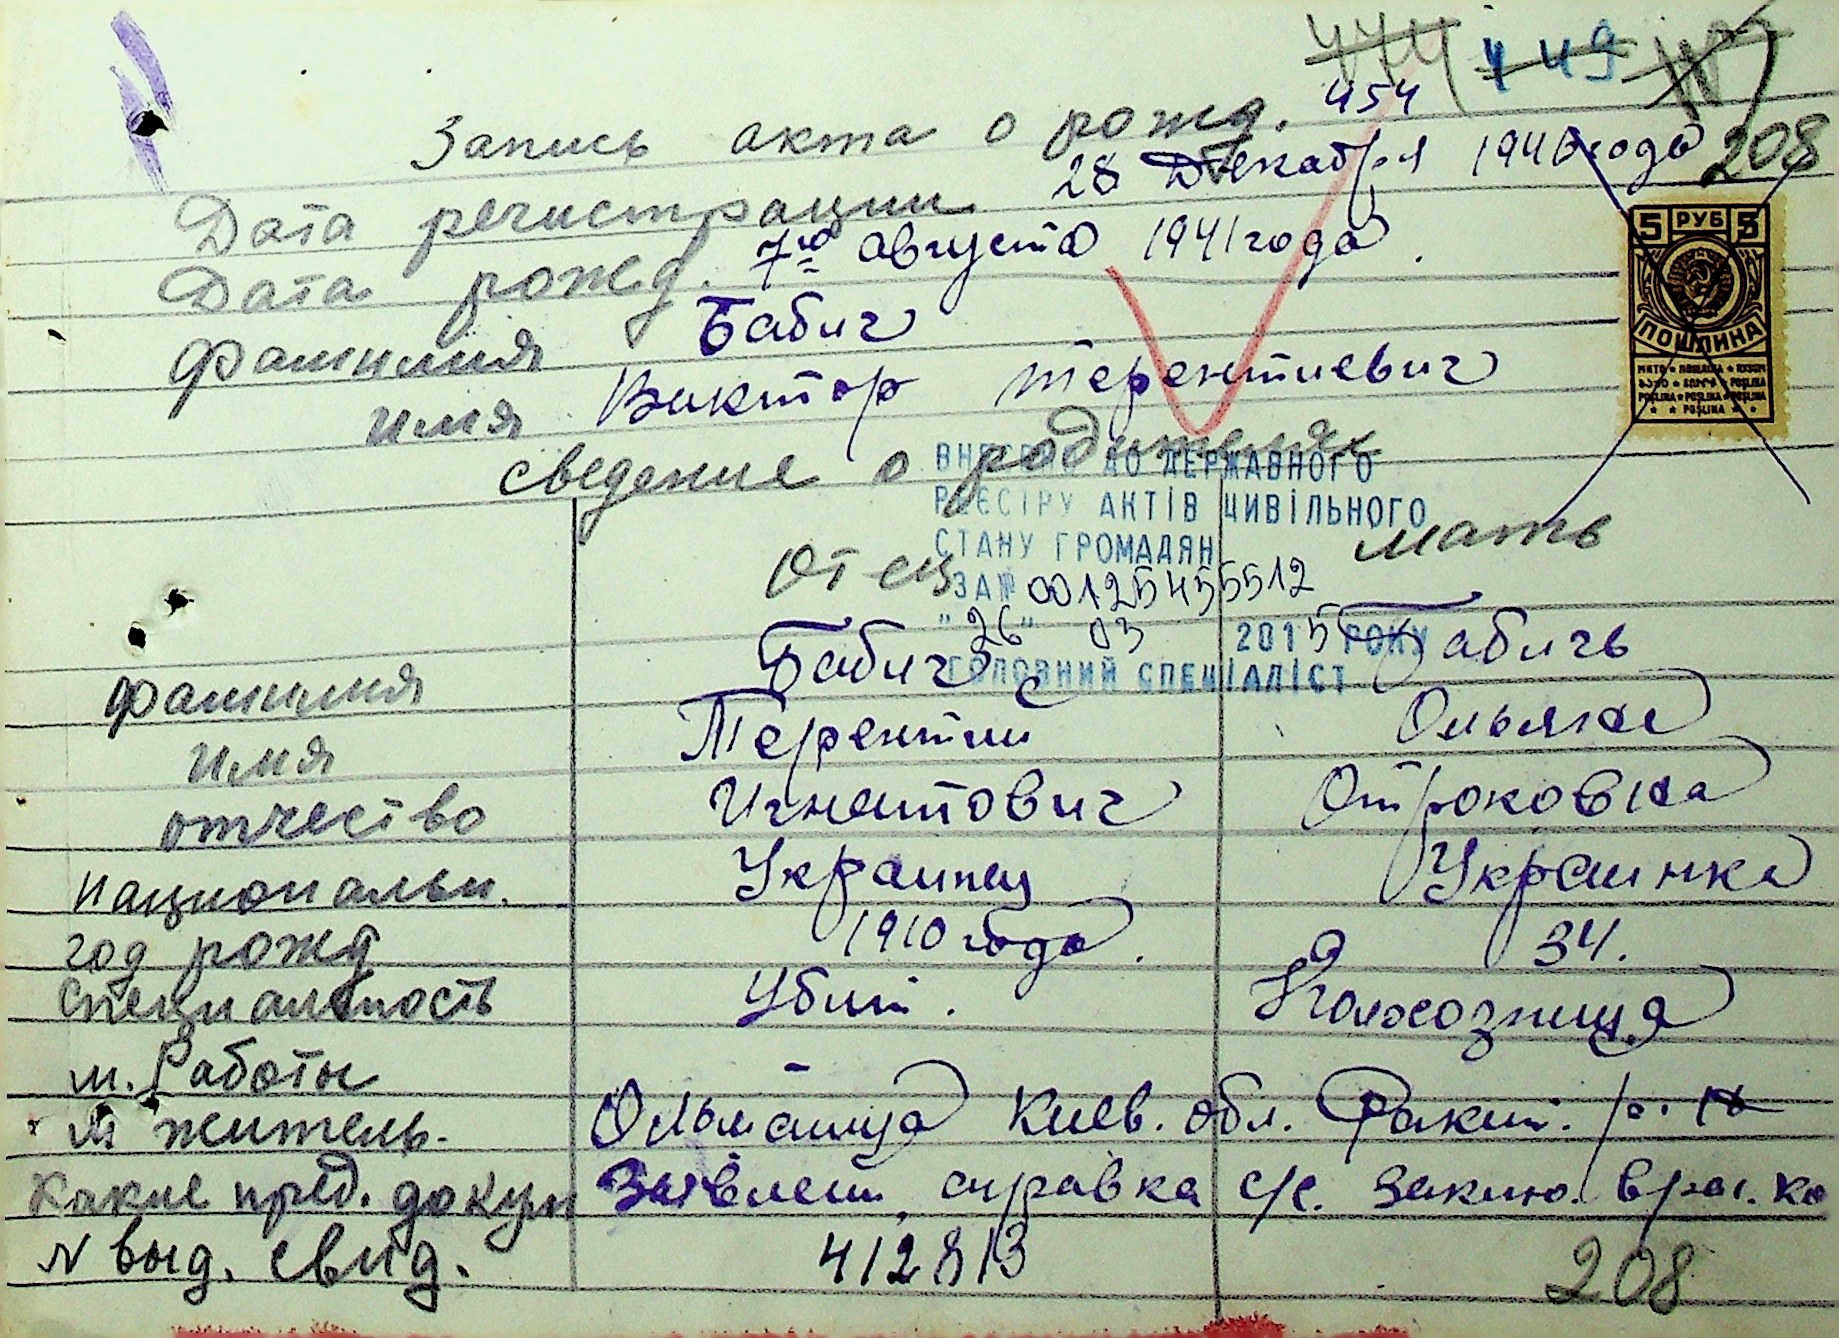 444 449
Запись акта о рожд. 454
208
Дата регистрации 28 Декабря 1946 года
Дата рожд. 7го августа 1941 года.
5 РУБ 5
ПОШЛИНА
Фамилия Бабич
имя Виктор Терентиевич
POSLINA
сведение о родителях
ВНЕСЕНО ДО ДЕРЖАВНОГО
РЕЄСТРУ АКТІВ ЦИВІЛЬНОГО
СТАНУ ГРОМАДЯН
ЗА № 00125455512
"26" 03 2015 РОКУ
ГОЛОВНИЙ СПЕЦІАЛІСТ
Отец мать
фамилия Бабич Бабичь
имя Терентий Ольяна
отчество Игнатович Отроковна
национальн. Украинец Украинка
год рожд 1910 года. 34.
специальность Убит. Колхозница
м. Работы
м житель. Ольшаница Киев. обл. Ракит. р.
Какие пред. докум Заявлен, справка с/с. Заклю. врач. ко
N выд. свид. 412813
208